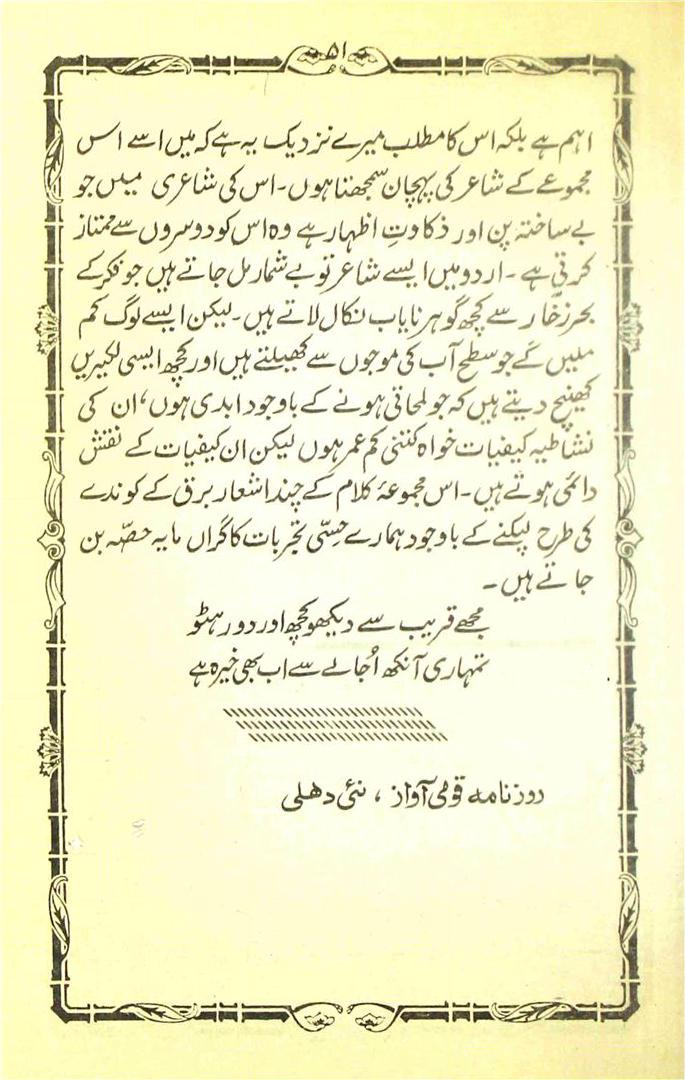 ۵۱
اہم ہے بلکہ اس کا مطلب میرے نزدیک یہ ہے کہ میں اسے اس
مجموعے کے شاعر کی پہچان سمجھتا ہوں۔ اس کی شاعری میں جو
بے ساختہ پن اور ذکاوتِ اظہار ہے وہ اس کو دوسروں سے ممتاز
کرتی ہے۔ اردو میں ایسے شاعر تو بے شمار مل جاتے ہیں جو فکر کے
بحرِ زخّار سے کچھ گوہر نایاب نکال لاتے ہیں۔ لیکن ایسے لوگ کم
ملیں گے جو سطح آب کی موجوں سے کھیلتے ہیں اور کچھ ایسی لکیریں
کھینچ دیتے ہیں کہ جو لمحاتی ہونے کے باوجود ابدی ہوں، ان کی
نشاطیہ کیفیات خواہ کتنی کم عمر ہوں لیکن ان کیفیات کے نقش
دائمی ہوتے ہیں۔ اس مجموعۂ کلام کے چند اشعار برق کے کوندے
کی طرح لپکنے کے باوجود ہمارے حِسّی تجربات کا گراں مایہ حصّہ بن
جاتے ہیں۔
مجھے قریب سے دیکھو کچھ اور دور ہٹو
تمہاری آنکھ اُجالے سے اب بھی خیرہ ہے
روزنامہ قومی آواز، نئی دھلی